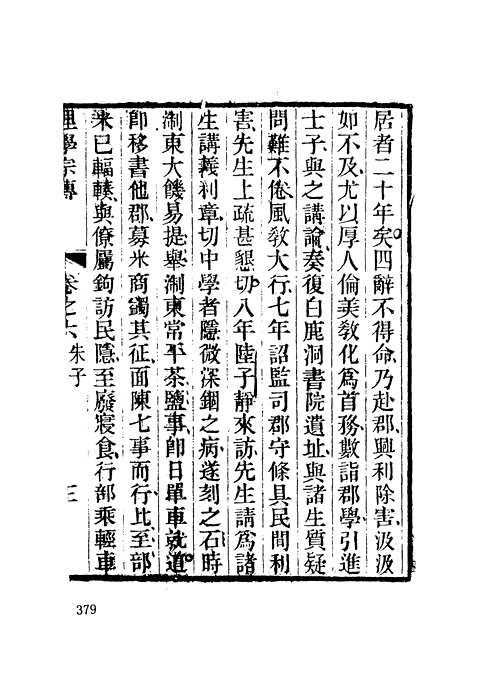 居者二十年矣四辭不得命乃赴郡興利除害汲汲
如不及尤以厚人倫美敎化爲首務數詣郡學引進
士子與之講論奏復白鹿洞書院遺址與諸生質疑
問難不倦風敎大行七年詔監司郡守條具民間利
害先生上疏甚懇切八年陸子靜來訪先生請爲諸
生講義利章切中學者隱微深錮之病遂刻之石時
浙東大饑易提舉浙東常平茶鹽事卽日單車就道
卽移書他郡募米商蠲其征面陳七事而行比至部
米已輻輳與僚屬鉤訪民隱至廢寢食行部乘輕車
理學宗傳 卷之六 朱子 三
379